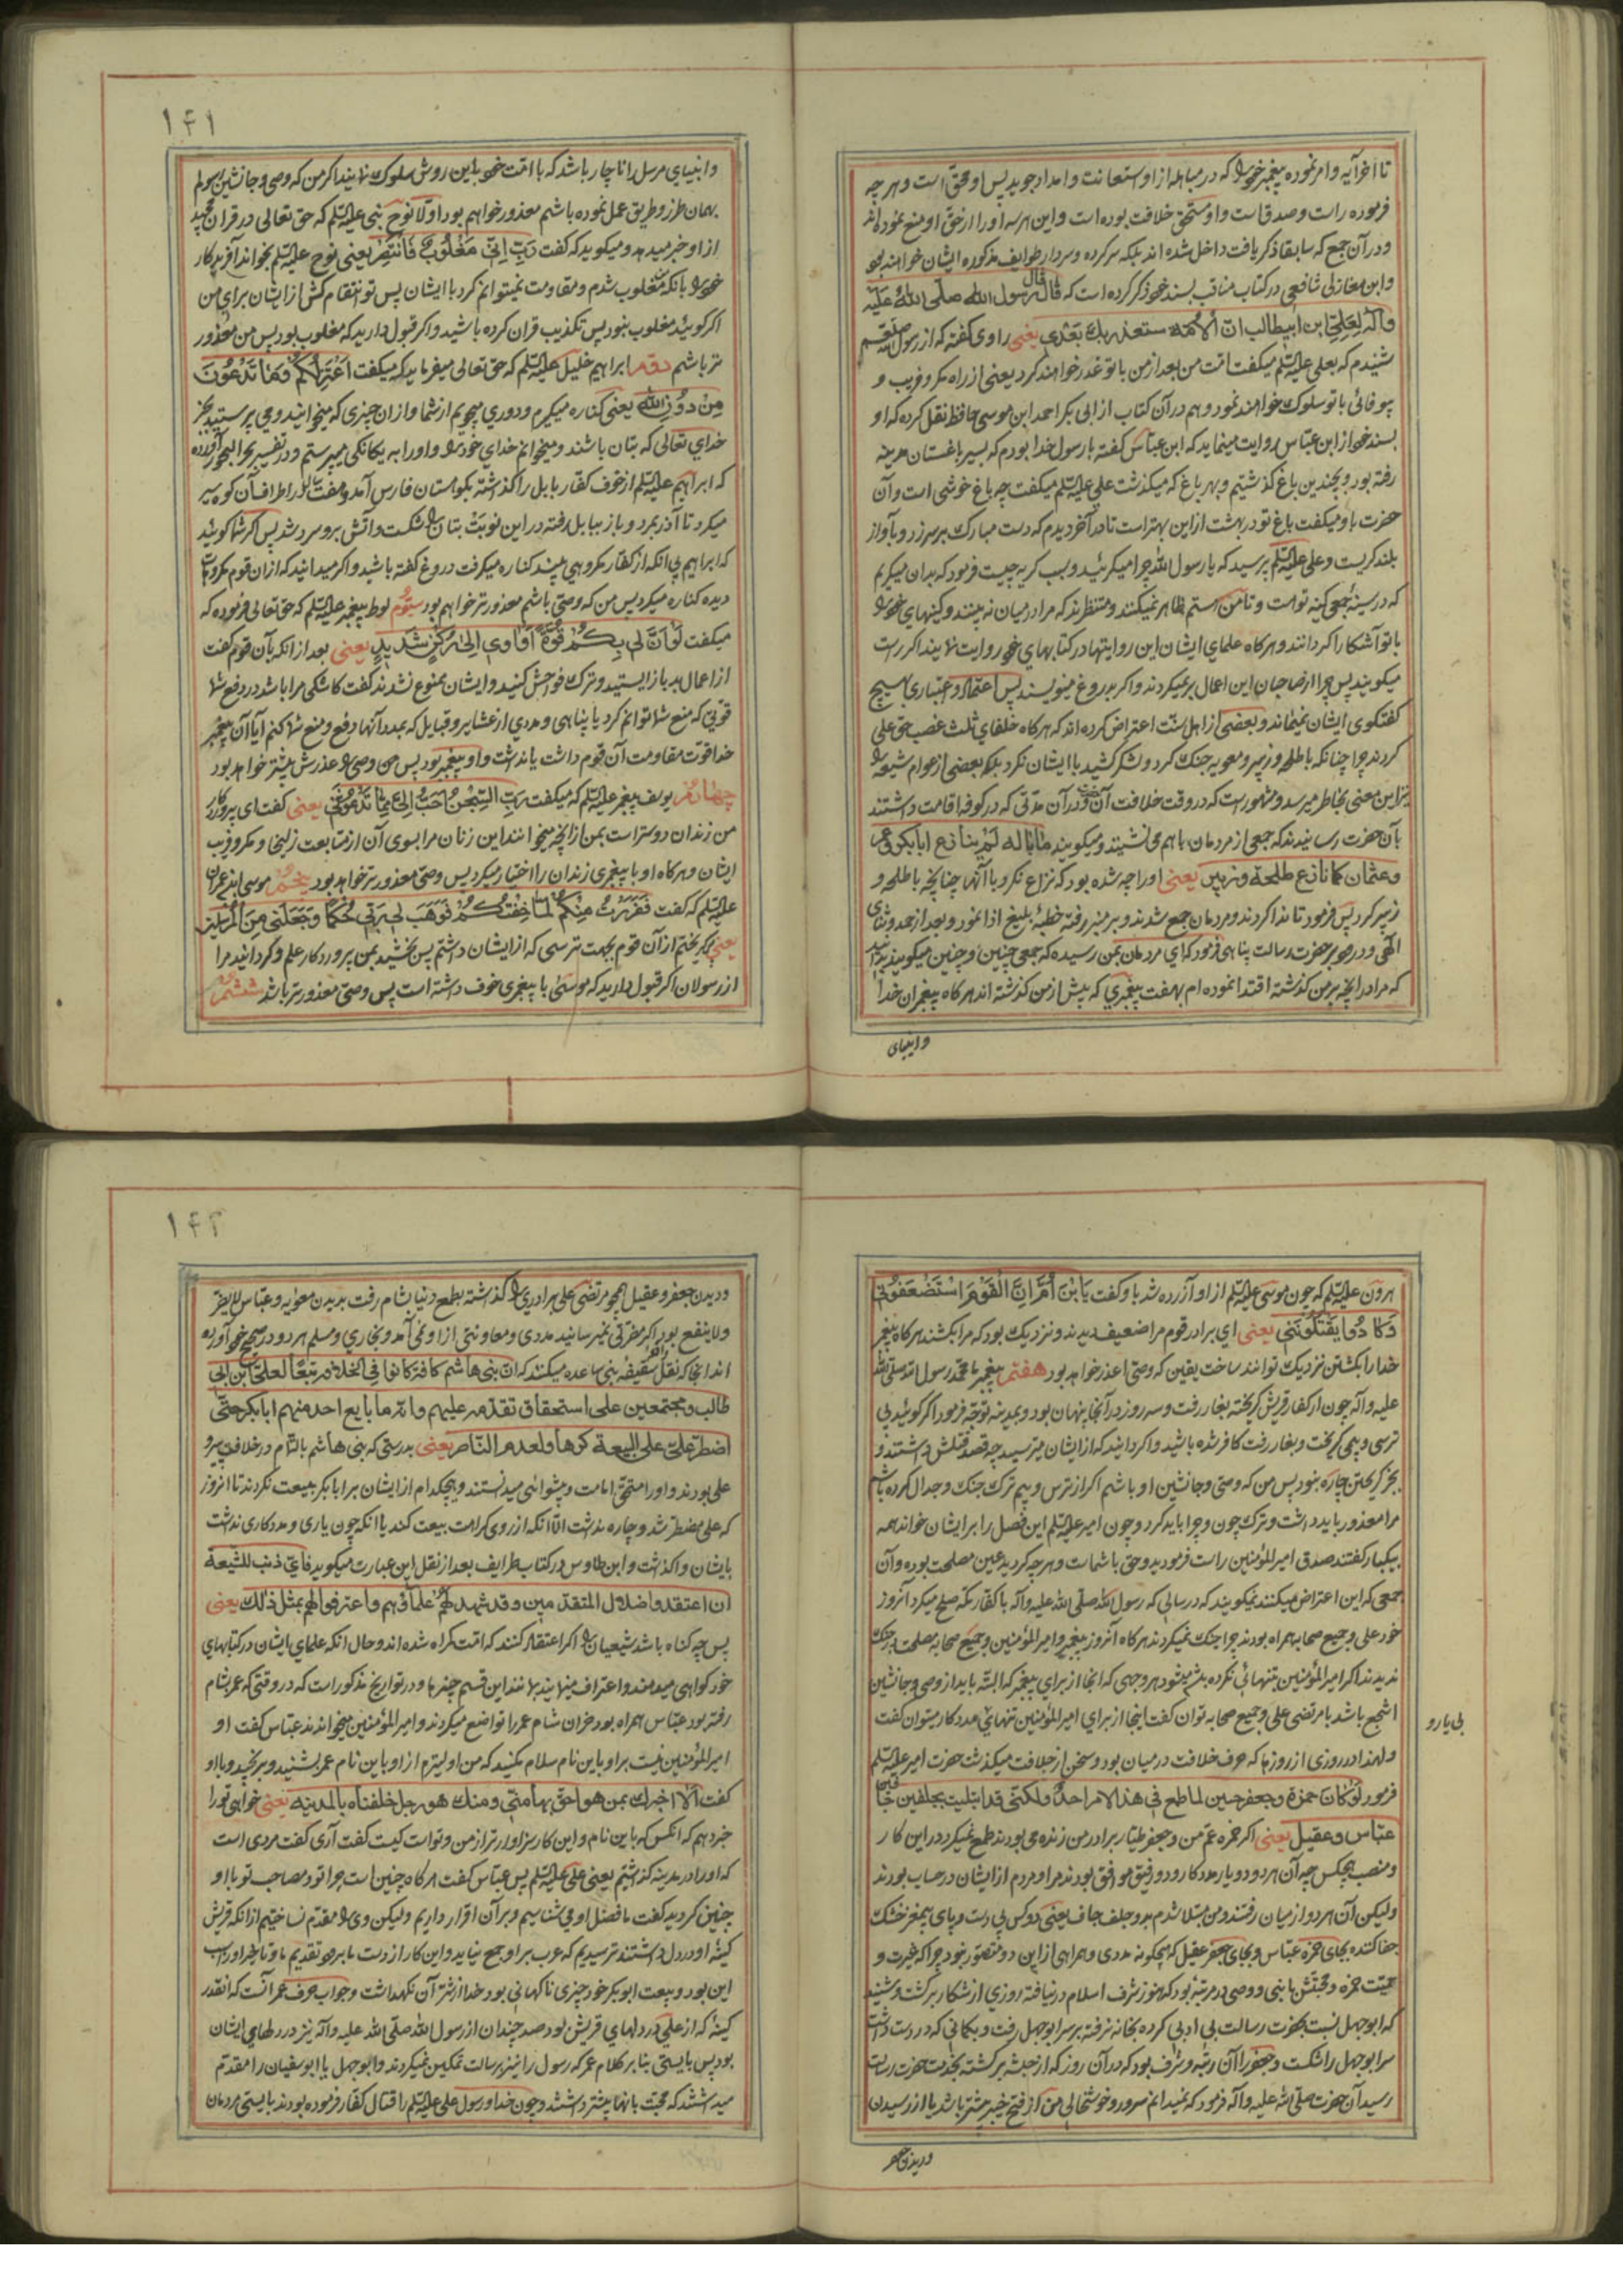 تا آخر آیه و امر نموده پیغمبر خود را که در مباهله از او استعانت و امداد جوید پس او محق است و هر چه
فرموده راست و صدقست و او مستحق خلافت بوده است و این هر سه او را از حق او منع نموده‌اند
و در آن جمع که سابقا ذکر یافت داخل شده‌اند بلکه سرکرده و سردار طوایف مذکوره ایشان خواهند بود
و ابن مغازلی شافعی در کتاب مناقب بسند خود ذکر کرده است که قال قال رسول الله صلی الله علیه
و آله لعلی ابن ابیطالب ان الامة ستغدر بک بعدی یعنی راوی گفته که از رسول الله صلعم
شنیدم که بعلی علیه السلم میگفت امت من بعد از من با تو غدر خواهند کرد یعنی از راه مکر و فریب و
بیوفائی با تو سلوک خواهند نمود و هم در آن کتاب از ابی بکر احمد ابن موسی حافظ نقل کرده که او
بسند خود از ابن عباس روایت مینماید که ابن عباس گفته با رسول خدا بودم که بسیر باغستان مدینه
رفته بود و بچندین باغ گذشتیم و بهر باغ که میگذشت علی علیه السلم میگفت چه باغ خوشی است و آن
حضرت باو میگفت باغ تو در بهشت از این بهتر است تا در آخر دیدم که دست مبارک بر سر زد و بآواز
بلند گریست و علی علیه السلم پرسید که یا رسول الله چرا میگرئید و سبب گریه چیست فرمود که بدان میگریم
که در سینه جمعی کینه تو است و تا من هستم ظاهر نمیکنند و منتظرند که مرا در میان نه بینند و کینهای خود را
با تو آشکارا گردانند و هر گاه علمای ایشان این روایتها در کتابهای خود روایت نمایند اگر راست
میگویند پس چرا ارضا جان این اعمال بر نمیگردند و اگر دروغ مینویسند پس اعتماد و اعتباری بهیچ
گفتگوی ایشان نمیماند و بعضی از اهل سنت اعتراض کرده‌اند که هر گاه خلفای ثلث غصب حق علی
کردند چرا چنانکه با طلحه و زبیر و معویه جنگ کرد و لشکر کشید با ایشان نکرد بلکه بعضی از عوام شیعه را
نیز این معنی بخاطر میرسد و مشهور است که در وقت خلافت آن حضرت و در آن مدتی که در کوفه اقامت داشتند
بآن حضرت رسانیدند که جمعی از مردمان با هم می نشینند و میگویند ما باله لم ینازع ابابکر و عمر
و عثمان کما نازع طلحة و زبیر یعنی او را چه شده بود که نزاع نکرد با آنها چنانچه با طلحه و
زبیر کرد پس فرمود تا ندا کردند و مردمان جمع شدند و بر منبر رفته خطبه بلیغ ادا نمود و بعد از حمد و ثنای
الهی و درود بر حضرت رسالت پناهی فرمود که ای مردمان بمن رسیده که جمعی چنین و چنین میگویند بدانید
که مرا در آنچه بر من گذشته اقتدا نموده‌ام بهفت پیغمبری که پیش از من گذشته‌اند هر گاه پیغمبران خدا
و انبیای
۱۴۱
و انبیای مرسل را ناچار باشد که با امت خود باین روش سلوک نمایند اگر من که وصی و جانشین رسولم
بهمان طرز و طریق عمل نموده باشم معذور خواهم بود اولا نوح نبی علیه السلم که حق تعالی در قران مجید
از او خبر میدهد و میگوید که گفت رب انی مغلوب فانتصر یعنی نوح علیه السلم بخواند آفریدگار
خود را بانکه من مغلوب شدم و مقاومت نمیتوانم کرد با ایشان پس تو انتقام کش از ایشان برای من
اگر گوئید مغلوب نبود پس تکذیب قران کرده باشید و اگر قبول دارید که مغلوب بود پس من معذور
تر باشم دوم ابراهیم خلیل علیه السلم که حق تعالی میفرماید که میگفت اعتزلکم و ما تدعون
من دون الله یعنی کناره میگیرم و دوری میجویم از شما و از ان چیزی که میخوانید و می پرستید بجز
خدای تعالی که بتان باشند و میخوانم خدای خود را و او را به یگانگی میپرستم و در تفسیر بحر البحور آورده
که ابراهیم علیه السلم از خوف کفار بابل را گذاشته بکوهستان فارس آمد و هفت سال در اطراف آن کوه سیر
میکرد تا آذر بمرد و باز ببابل رفته در این نوبت بتان را شکست و آتش برو سرد شد پس اگر شما گوئید
که ابراهیم بی انکه از کفار مکروهی بیند کناره میگرفت دروغ گفته باشید و اگر میدانید که از ان قوم مکروهات
دیده کناره میکرد پس من که وصی باشم معذورتر خواهم بود سیوم لوط پیغمبر علیه السلم که حق تعالی فرموده که
میگفت لو ان لی بکم قوة او اوی الی رکن شدید یعنی بعد از انکه بآن قوم گفت
از اعمال بد باز ایستید و ترک فواحش کنید و ایشان ممنوع نشدند گفت کاشکی مرا باشد در دفع شما
قوتی که منع شما توانم کرد یا پناهی و مددی از عشایر و قبایل که بمدد آنها دفع و منع شما کنم آیا آن پیغمبر
خدا قوت مقاومت آن قوم داشت یا نداشت و او پیغمبر بود پس من وصی را عذرش بیشتر خواهد بود
چهارم یوسف پیغمبر علیه السلم که میگفت رب السجن احب الی مما تدعوننی یعنی گفت ای پروردگار
من زندان دوستر است بمن از انچه میخوانند این زنان مرا بسوی آن از متابعت زلیخا و مکر و فریب
ایشان و هر گاه او با پیغمبری زندان را اختیار میکرد پس وصی معذورتر خواهد بود پنجم موسی ابن عمران
علیه السلم که گفت ففررت منکم لما خفتکم فوهب لی ربی حکما و جعلنی من المرسلین
یعنی بگریختم از آن قوم بجهت ترسی که از ایشان داشتم پس بخشید بمن پروردگار علم و گردانید مرا
از رسولان اگر قبول دارید که موسی با پیغمبری خوف داشته است پس وصی معذورتر باشد ششم
هرون علیه السلم که چون موسی علیه السلم از او آزرده شد باو گفت یا بن ام ان القوم استضعفونی
و کادوا یقتلوننی یعنی ای برادر قوم مرا ضعیف دیدند و نزدیک بود که مرا بکشند هر گاه پیغمبر
خدا را بکشتن نزدیک توانند ساخت یقین که وصی اعذر خواهد بود هفتم پیغمبر ما محمد رسول الله صلی الله
علیه و آله چون از کفار قریش گریخته بغار رفت و سه روز در آنجا پنهان بود و بمدینه توجه فرمود اگر گوئید بی
ترسی و بیمی گریخت و بغار رفت کافر شده باشید و اگر دانید که از ایشان میترسید چه قصد قتلش داشتند و
بجز گریختن چاره نبود پس من که وصی و جانشین او باشم اگر از ترس و بیم ترک جنگ و جدال کرده باشم
مرا معذور باید داشت و ترک چون و چرا باید کرد و چون امیر علیه السلم این فصل را بر ایشان خواند همه
بیکبار گفتند صدق امیر المؤمنین راست فرمودید و حق با شماست و هر چه کردید عین مصلحت بوده و آن
جمعی که این اعتراض میکنند نمیگویند که در سالی که رسول الله صلی الله علیه و آله با کفار مکه صلح میکرد آنروز
خود علی و جمیع صحابه همراه بودند چرا جنگ نمیکردند هر گاه آنروز پیغمبر و امیر المؤمنین و جمیع صحابه مصلحت در جنگ
ندیدند اگر امیر المؤمنین بتنهائی نکرده باشد میشود هر وجهی که انجا از برای پیغمبر که البته باید از وصی و جانشین
اشجع باشد با مرتضی علی و جمیع صحابه توان گفت اینجا از برای امیر المؤمنین تنهای مددکار میتوان گفت
بی یار و
و لهذا در روزی از روزها که حرف خلافت در میان بود و سخن از خلافت میگذشت حضرت امیر علیه السلم
فرمود لو کان حمزة و جعفر حیین لما طمع فی هذا الامر احد و لکنی قد ابتلیت بجلفین جافین
عباس و عقیل یعنی اگر حمزه عم من و جعفر طیار برادر من زنده می بودند طمع نمیکرد در این کار
و منصب هیچکس چه آن هر دو دو یار مددکار و دو رفیق موافق بودند مرا و مردم از ایشان در حساب بودند
ولیکن آن هر دو از میان رفتند و من مبتلا شدم بدو جلف جاف یعنی دو کس بی دست و پای بیمغز خشک
جفا کننده بجای حمزه عباس و بجای جعفر عقیل که هیچگونه مددی و همراهی از این دو متصور نبود چرا که غیرت و
حمیت حمزه و محبتش با نبی و وصی در مرتبه بود که هنوز شرف اسلام در نیافته روزی از شکار برگشت و شنید
که ابوجهل نسبت بحضرت رسالت بی ادبی کرده بخانه نرفته بر سر ابوجهل رفت و بکمانی که در دست داشت
سر ابوجهل را شکست و جعفر را آن رتبه و شرف بود که در آن روز که از حبشه برگشته بخدمت حضرت رسالت
رسید آن حضرت صلی الله علیه و آله فرمود که نمیدانم سرور و خوشحالی من از فتح خیبر بیشتر باشد یا از رسیدن
و دیدن جعفر
۱۴۲
و دیدن جعفر و عقیل همچو مرتضی علی برادری را گذاشته بطمع دنیا بشام رفت بدیدن معویه و عباس لا یضر
و لا ینفع بود اگر مضرتی نمیرسانید مددی و معاونتی از او نمی آمد و بخاری و مسلم هر دو در صحیح خود آورده
اند انجا که نقل سقیفه بنی ساعده میکنند که ان بنی هاشم کافة کانوا فی الخلافة تبعا لعلی ابن ابی
طالب و مجتمعین علی استحقاق تقدمه علیهم و انه ما بایع احد منهم ابابکر حتی
اضطر علی علی البیعة کرها و لعدم الناصر یعنی بدرستی که بنی هاشم بالتمام در خلافت پیرو
علی بودند و او را مستحق امامت و پیشوائی میدانستند و هیچکدام از ایشان برابا بکر بیعت نکردند تا انروز
که علی مضطر شد و چاره نداشت الا انکه از روی کراهت بیعت کند با انکه چون یاری و مددکاری نداشت
بایشان واگذاشت و ابن طاوس در کتاب طرایف بعد از نقل این عبارت میگوید فای ذنب للشیعة
ان اعتقدوا ضلال المتقدمین و قد شهد لهم علماؤهم و اعترفوا لهم بمثل ذلک یعنی
پس چه گناه باشد شیعیان را اگر اعتقاد کنند که امت گمراه شده‌اند و حال انکه علمای ایشان در کتابهای
خود گواهی میدهند و اعتراف مینمایند بمانند این قسم چیزها و در تواریخ مذکور است که در وقتی که عمر بشام
رفته بود عباس همراه بود خران شام عمر را تواضع میکردند و امیر المؤمنین میخواندند عباس گفت او
امیر المؤمنین نیست بر او باین نام سلام مکنید که من اولیترم از او باین نام عمر بشنید و برنجید و باو
گفت الا اخبرک بمن هو احق بها منی و منک هو رجل خلفناه بالمدینه یعنی خواهی تو را
خبر دهم که انکس که باین نام و این کار سزاوارتر از من و تو است کیست گفت آری گفت مردی است
که او را در مدینه گذاشتیم یعنی علی علیه السلم پس عباس گفت هر گاه چنین است چرا تو و مصاحب تو با او
چنین کردید گفت ما فضل او می شناسیم و بر آن اقرار داریم ولیکن وی را مقدم نساختیم از انکه قریش
کینه او در دل داشتند ترسیدیم که عرب بر او جمع نیاید و این کار از دست ما برود تقدیم ما و تاخیر او را سبب
این بود و بیعت ابوبکر خود چیزی ناگهانی بود خدا از شر آن نگهداشت و جواب حرف عمر آنست که انقدر
کینه که از علی در دلهای قریش بود صد چندان از رسول الله صلی الله علیه و آله نیز در دلهای ایشان
بود پس بایستی بنا بر کلام عمر که رسول را نیز برسالت تمکین نمیکردند و ابوجهل یا ابوسفیان را مقدم
میداشتند که محبت بانها بیشتر داشتند و چون خدا و رسول علی علیه السلم را قتال کفار فرموده بودند بایستی مردمان